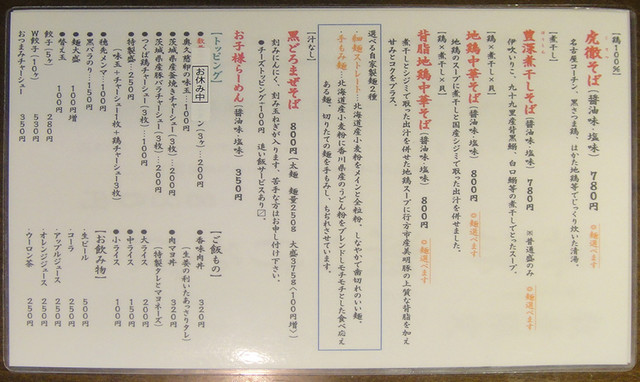 【鶏100%】
虎徹そば(醤油味・塩味) 780円 ◎麺選べます
名古屋コーチン、黒さつま鶏、はかた地鶏等でじっくり炊いた清湯。
【煮干し】
豊深煮干しそば(醤油味・塩味) 780円 ※普通盛のみ ◎麺選べます
伊吹いりこ、九十九里産背黒鰯、白口鰯等の煮干しでとったスープ。
【鶏×煮干し×貝】
地鶏中華そば(醤油味・塩味) 800円 ◎麺選べます
地鶏のスープに煮干しと国産シジミで取った出汁を併せました。
【鶏×煮干し×貝】
背脂地鶏中華そば(醤油味・塩味) 800円 ◎麺選べます
煮干しとシジミで取った出汁を併せた地鶏スープに行方市産美明豚の上質な背脂を加え
甘みとコクをプラス。
選べる自家製麺2種
・細麺ストレート…北海道産小麦粉をメインと全粒粉、しなやかで歯切れのいい麺。
・手もみ麺…北海道産小麦粉に香川県産のうどん粉をブレンドしモチモチとした食べ応え
ある麺、切りたての麺を手もみし、ちぢれさせています。
【汁なし】
黒どろまぜそば 800円(太麺 麺量250g 大盛375g(100円増))
刻みにんにく、刻み玉ねぎが入ります。苦手な方はお申し付け下さい。
・チーズトッピング…100円 追い飯サービスあり〼。
お子様らーめん(醤油味・塩味) 350円
【トッピング】
お休み中
ン(3ヶ)…200円
●奥久慈卵の味玉…100円
●茨城県産釜焼きチャーシュー(3枚)…200円
●茨城県産豚バラチャーシュー(3枚)…200円
●つくば鶏チャーシュー(3枚)…100円
●特製盛…250円
(味玉+チャーシュー1枚+鶏チャーシュー3枚)
●穂先メンマ…100円
●黒バラのり…150円
●麺大盛 100円増
●替え玉 100円
餃子(5ヶ) 280円
W餃子(10ヶ) 530円
おつまみチャーシュー 350円
【ご飯もの】
●香味肉丼 320円
(生姜の利いたあっさりタレ)
●肉マヨ丼 320円
(特製タレとマヨネーズ)
●大ライス 200円
●中ライス 150円
●小ライス 100円
【お飲み物】
・生ビール 500円
・コーラ 250円
・アップルジュース 250円
・オレンジジュース 250円
・ウーロン茶 250円